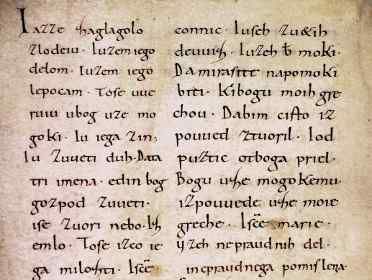 Iazze zaglagolo
zlodeiu. Iuzem iego
delom. Iuzem iego
lepocam. Tose uue
ruiu ubog uze mo
goki. Iu iega zin;
Iu zuueti duh. Data
tri imena. edin bog
gozpod zuueti.
ise zuori nebo. Iz
emlo. Tose izco ie
ga milozti. Iscē
connic. Iuseh zuuetih
deuuiz. Iuzeh bo moki.
Da mirasite napomoki
biti. Kibogu moih gre
chou. Dabim cisto iz
pouued ztuoril. Iod
puztic otboga priel.
Bogu uze mogokemu.
izpouuede uze moie
greche. Iscē marie.
uzeh nepraudnih del.
inepraudnega pomislena.